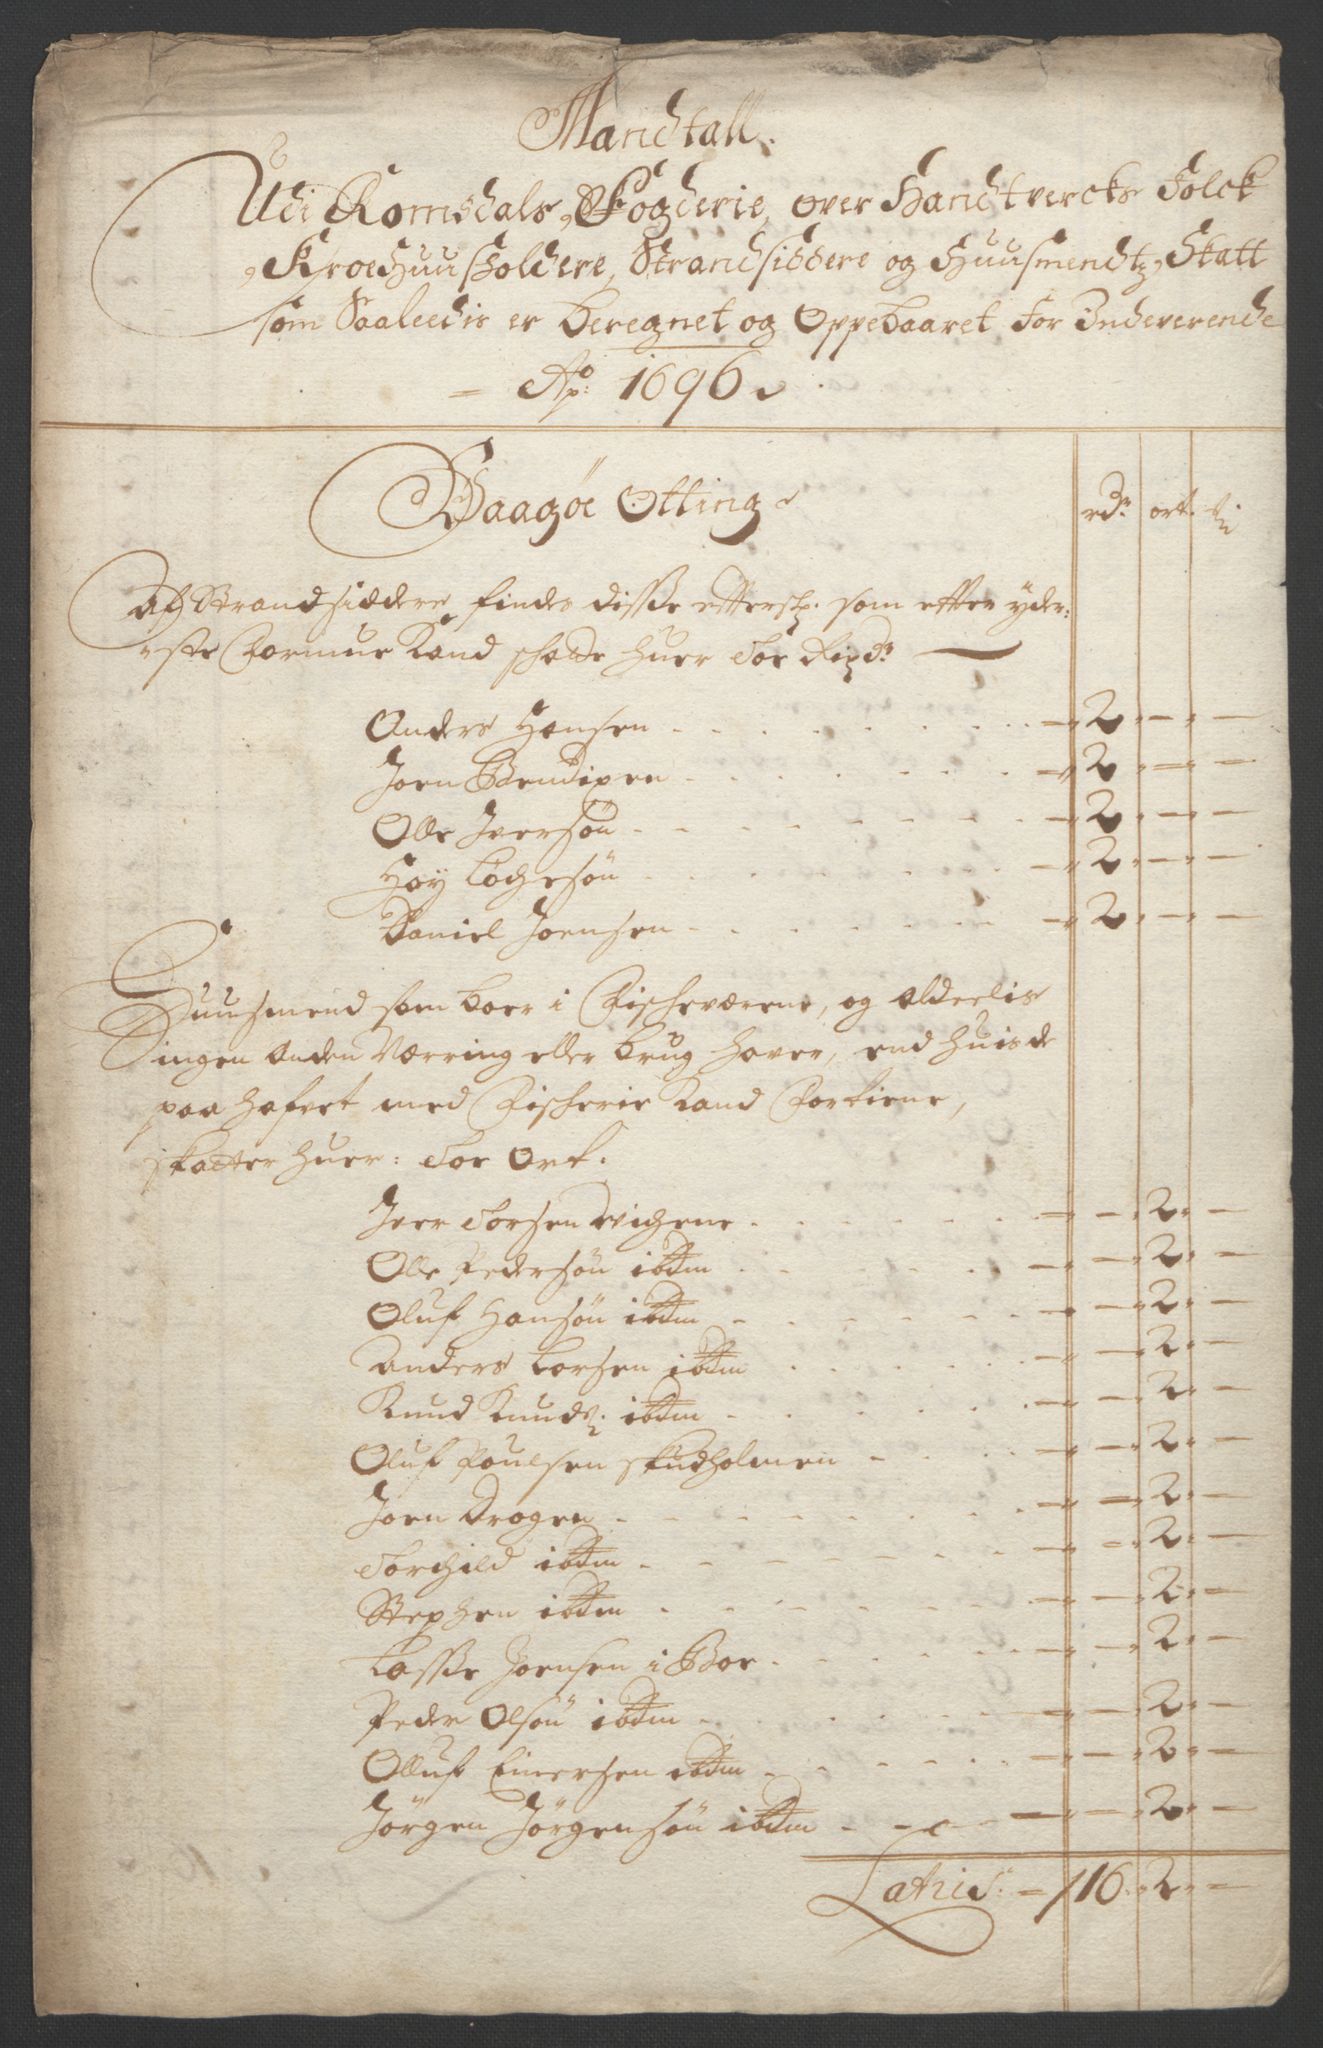 Mandtall
Udi Romsdals Fogderie, over Handtvercks Folck
Kroehuusholdere, Strandsiddere og Huusmendtz Skatt
som Saaleedis er beregnet og Oppebaaret for Indeverende
Ao: 1696
Baagøe Otting
rdr ort ß
Af Strandsiddere findes disse effterschr: som effter yder-
ste Formue Kand schatte huer Toe Rixdr
Anders Hansen - 2 - -
Joen Bendixen - 2 - -
Olle Jversøn - 2 - -
Høy Løchesøn - 2 - -
Daniel Joensen - 2 - -
Huusmend som boer i Fischeværene, og aldeelis
ingen anden Næring eller brug hafver, end huis de
paa hafvet med Fischerie Kand Fortiene,
skatter huer: Toe Ort.
Jver Torsen Wichene - - 2 -
Olle Pedersøn ibdm - - 2 -
Oluf Hansøn ibdm - - 2 -
Anders Larsen ibdm - - 2 -
Knud Knuds: ibdm - - 2 -
Oluf Poulsen skudholmen - - 2 -
Joen Drogen - - 2 -
Torchild ibdm - - 2 -
Stephen ibdm - - 2 -
Lasse Joensen i Boe - - 2 -
Peder Olsøn ibdm - - 2 -
Olluf Einersen ibdm - - 2 -
Jørgen Jørgensøn ibdm - - 2 -
Lateris - 16 - 2 -